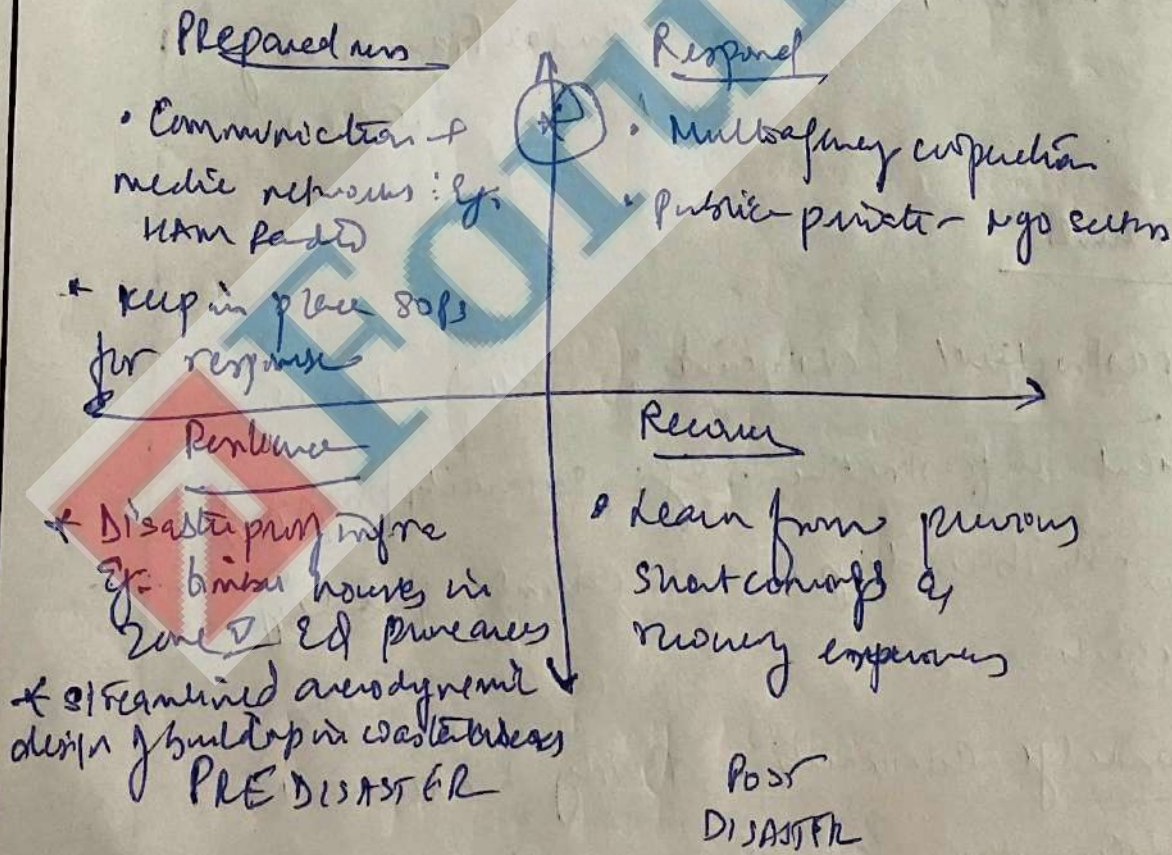 Preparedness
• Communication &
media networks: Eg.
HAM Radio
* Keep in place SOPs
for response
Respond
• Multiagency cooperation
• Public-private-ngo sectors
Resilience
* Disaster proof infra
Eg- timber houses in
Zone V EQ prone areas
* Streamlined aerodynamic
design of buildup in coastal areas
PRE DISASTER
Recover
• Learn from previous
shortcomings &
recovery experiences
POST
DISASTER
Foru